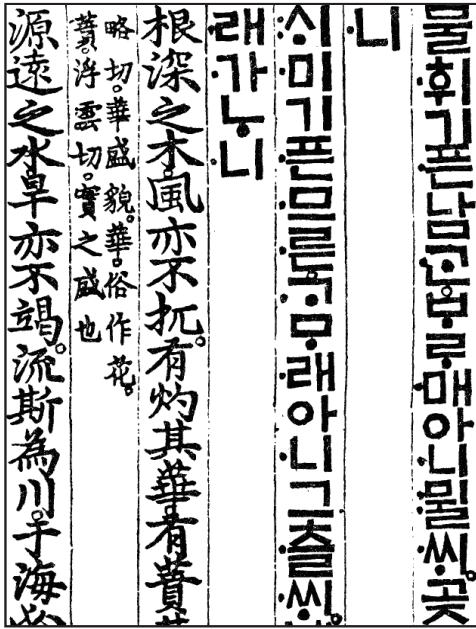 불휘기픈남ᄀᆞᆫᄇᆞᄅᆞ매아니뮐ᄊᆡ。곶
니
ᄉᆡ미기픈므른ᄀᆞᄆᆞ래아니그츨ᄊᆡ。
래가ᄂᆞ니
根深之木。風亦不扤。有灼其華。有蕡
略切。華盛貌。華。俗作花。
蕡。浮雲切。實之盛也
源遠之水。旱亦不竭。流斯為川。于海必